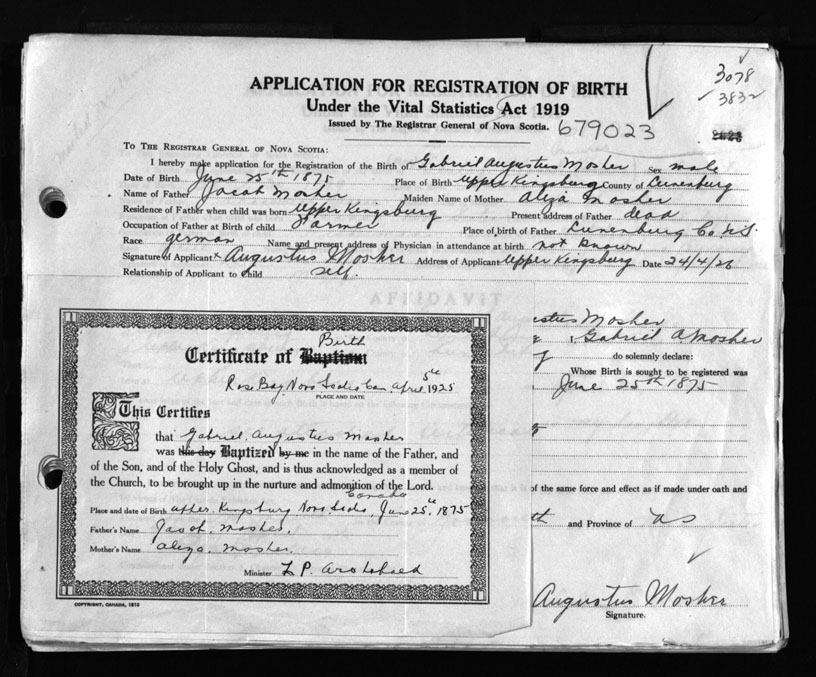 3078
3832
APPLICATION FOR REGISTRATION OF BIRTH
Under the Vital Statistics Act 1919
Issued by The Registrar General of Nova Scotia. 679023
TO THE REGISTRAR GENERAL OF NOVA SCOTIA:
I hereby make application for the Registration of the Birth of Gabriel Augustus Mosher Sex male
Date of Birth June 25th 1875 Place of Birth Upper Kingsburg County of Lunenburg
Name of Father Jacob Mosher Maiden Name of Mother Aliza Mosher
Residence of Father when child was born Upper Kingsburg Present address of Father dead
Occupation of Father at Birth of child Farmer Place of birth of Father Lunenburg Co. N.S.
Race german Name and present address of Physician in attendance at birth not known
Signature of Applicant x Augustus Mosher Address of Applicant Upper Kingsburg Date 24/4/26
Relationship of Applicant to Child self.
AFFIDAVIT
Mosher
Gabriel A Mosher
do solemnly declare:
Whose Birth is sought to be registered was
June 25th 1875
of the same force and effect as if made under oath and
and Province of NS
Augustus Mosher
Signature.
Birth
Certificate of Baptism
Rose Bay, Nova Scotia Can. April 5th 1925
PLACE AND DATE
This Certifies
that Gabriel Augustus Mosher
was this day Baptized by me in the name of the Father, and
of the Son, and of the Holy Ghost, and is thus acknowledged as a member of
the Church, to be brought up in the nurture and admonition of the Lord.
Canada
Place and date of Birth Upper Kingsburg Nova Scotia, June 25th, 1875
Father's Name Jacob Mosher.
Mother's Name Aliza Mosher.
Minister
COPYRIGHT, CANADA, 1910